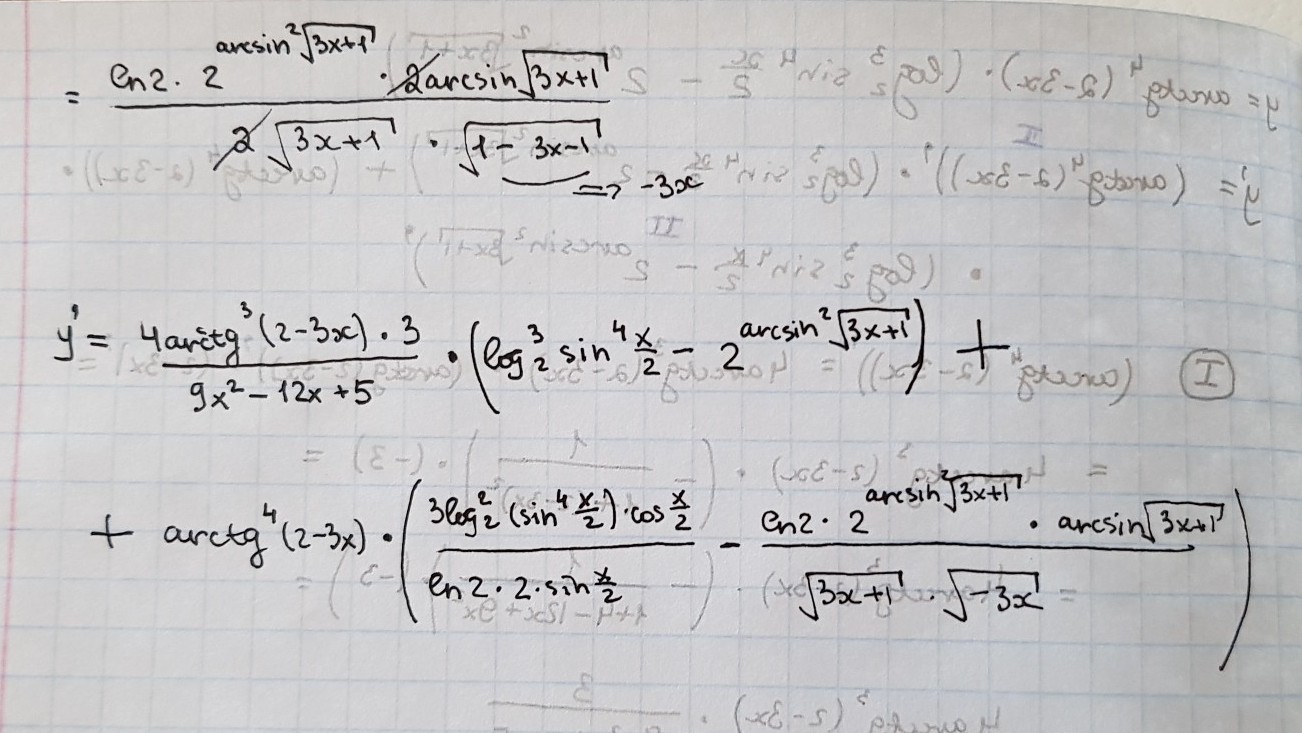 = (ln2 · 2^(arcsin²√(3x+1)) · 2arcsin√(3x+1)) / (2√(3x+1) · √(1-3x-1))
=> -3x
y' = (4arctg³(2-3x) · 3) / (9x² - 12x + 5) · (log₂³ sin⁴ x/2 - 2^(arcsin²√(3x+1))) +
+ arctg⁴(2-3x) · ((3log₂²(sin⁴ x/2) · cos x/2) / (ln2 · 2 · sin x/2) - (ln2 · 2^(arcsin²√(3x+1)) · arcsin√(3x+1)) / (√(3x+1) · √(-3x)))